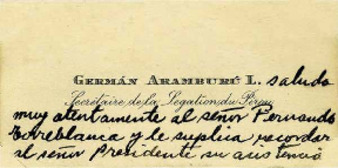 GERMÁN ARAMBURÚ L. saluda
Secrétaire de la Légation du Pérou
muy atentamente al señor Fernando
Torreblanca y le suplica recordar
al señor Presidente su asistencia